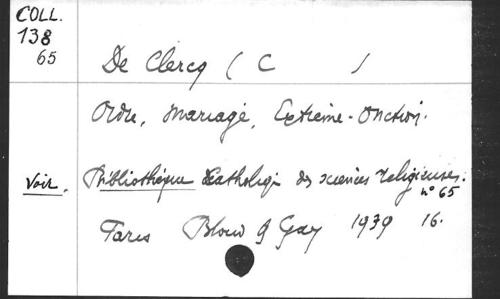 COLL.
138
65
De Clercq ( C )
Ordre, Mariage, Extrême-Onction.
Voir. Bibliothèque Catholique des sciences religieuses.
n° 65
Paris Bloud & Gay 1939 16.